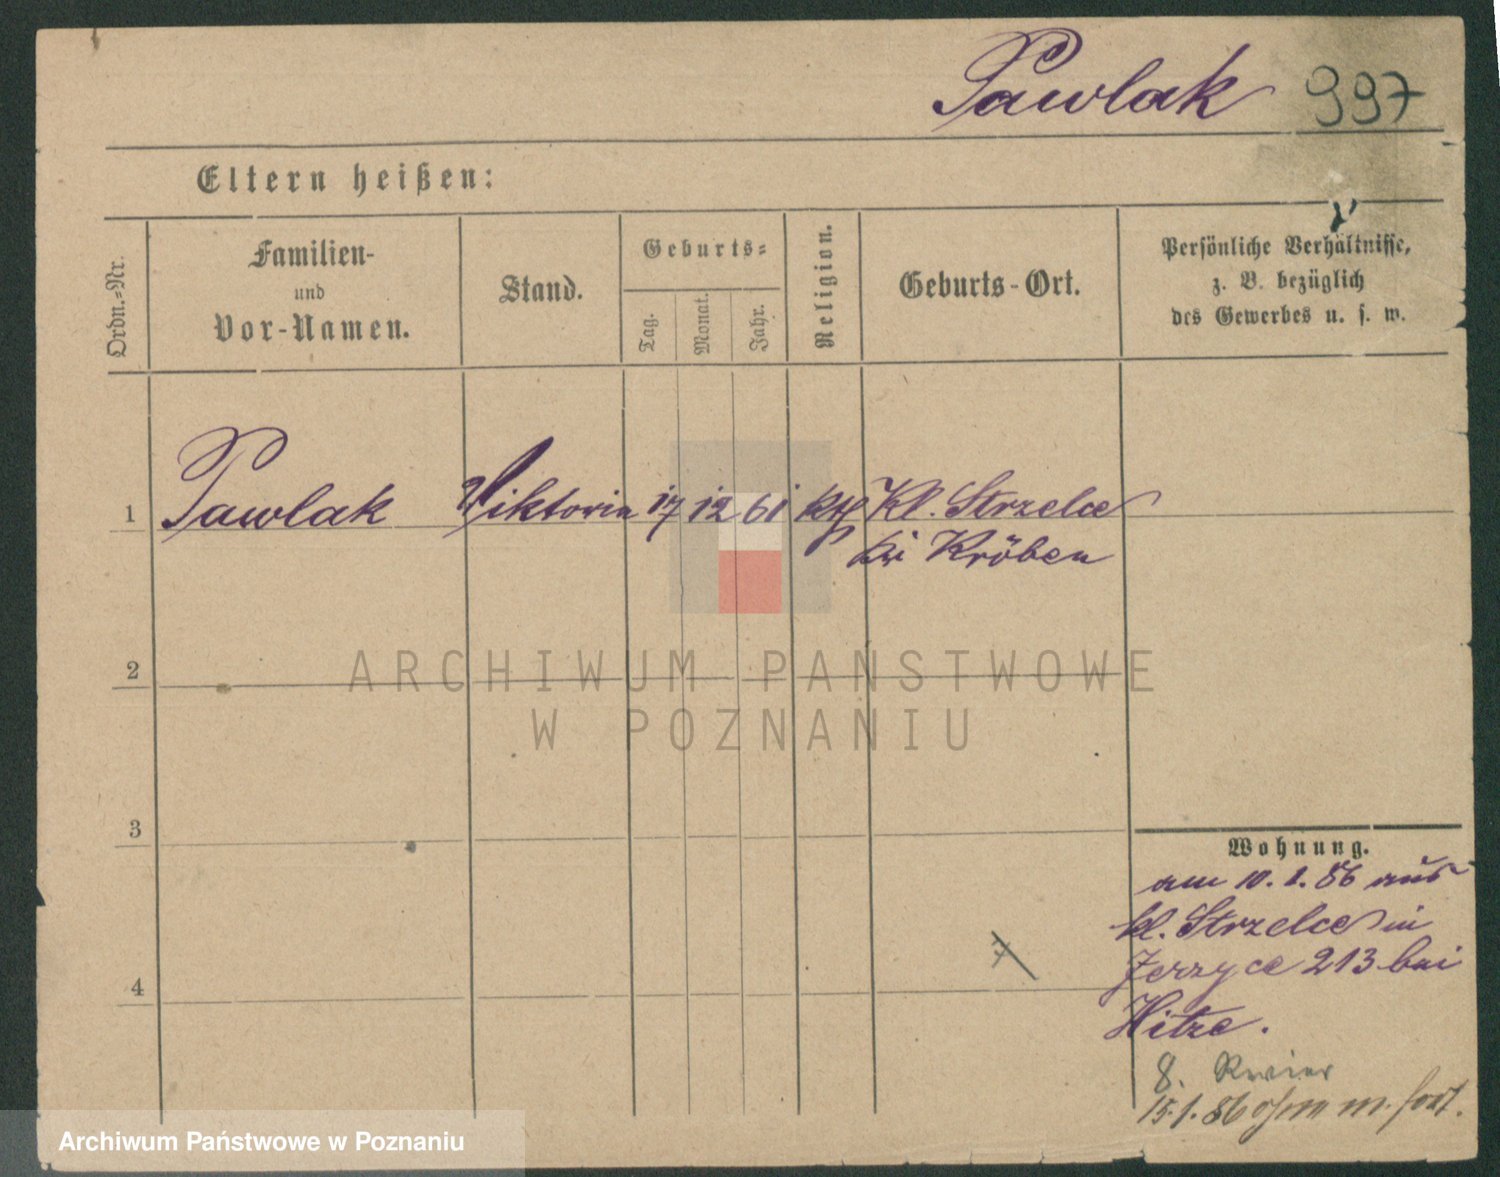 Pawlak 997
Eltern heißen:
Ordn.=Nr.
Familien-
und
Vor-Namen.
Stand.
Geburts=
Tag.
Monat.
Jahr.
Religion.
Geburts-Ort.
Persönliche Verhältnisse,
z. B. bezüglich
des Gewerbes u. s. w.
1 Pawlak Viktoria 17 12 61 kth Kl. Strzelce
bei Kröben
2
3
4
Wohnung.
am 10. 1. 86 aus
kl. Strzelce in
Jerzyce 213 bei
Hitze.
8. Revier
15.1.86 m. fort.
ARCHIWUM PAŃSTWOWE
W POZNANIU
Archiwum Państwowe w Poznaniu